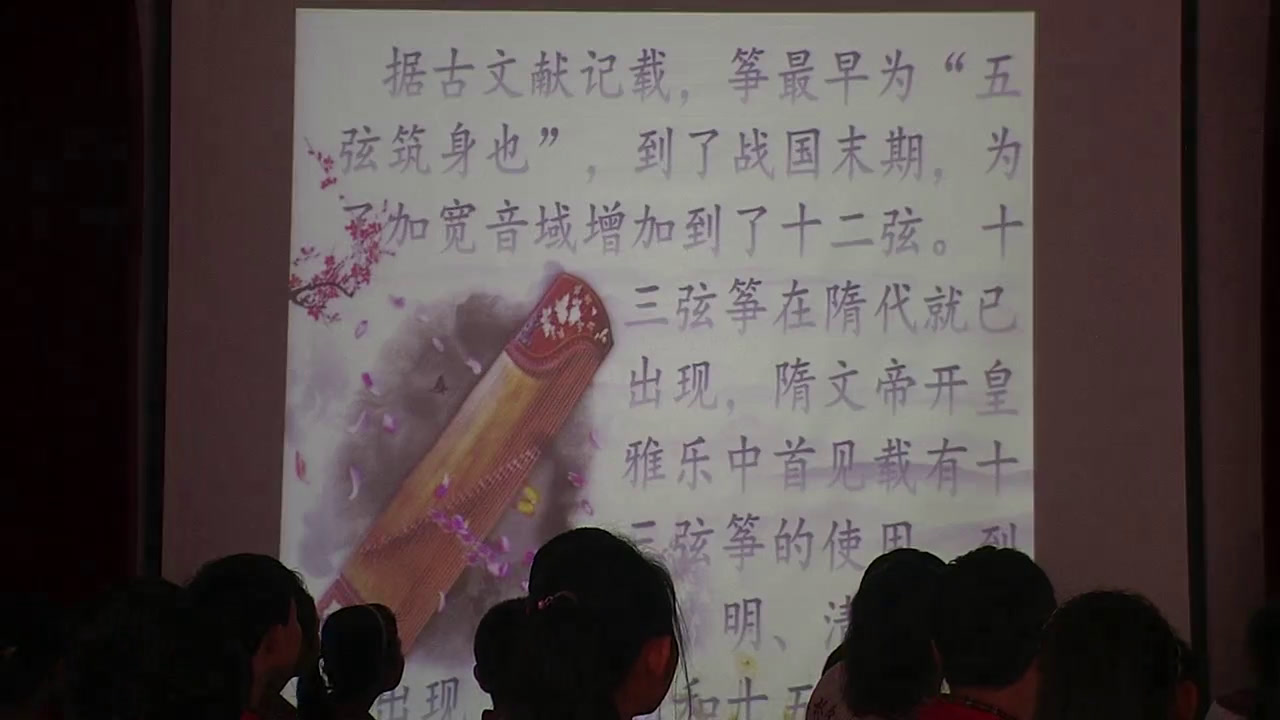 据古文献记载，筝最早为“五
弦筑身也”，到了战国末期，为
了加宽音域增加到了十二弦。十
三弦筝在隋代就已
出现，隋文帝开皇
雅乐中首见载有十
三弦筝的使用 到
明、清
出现 和十五